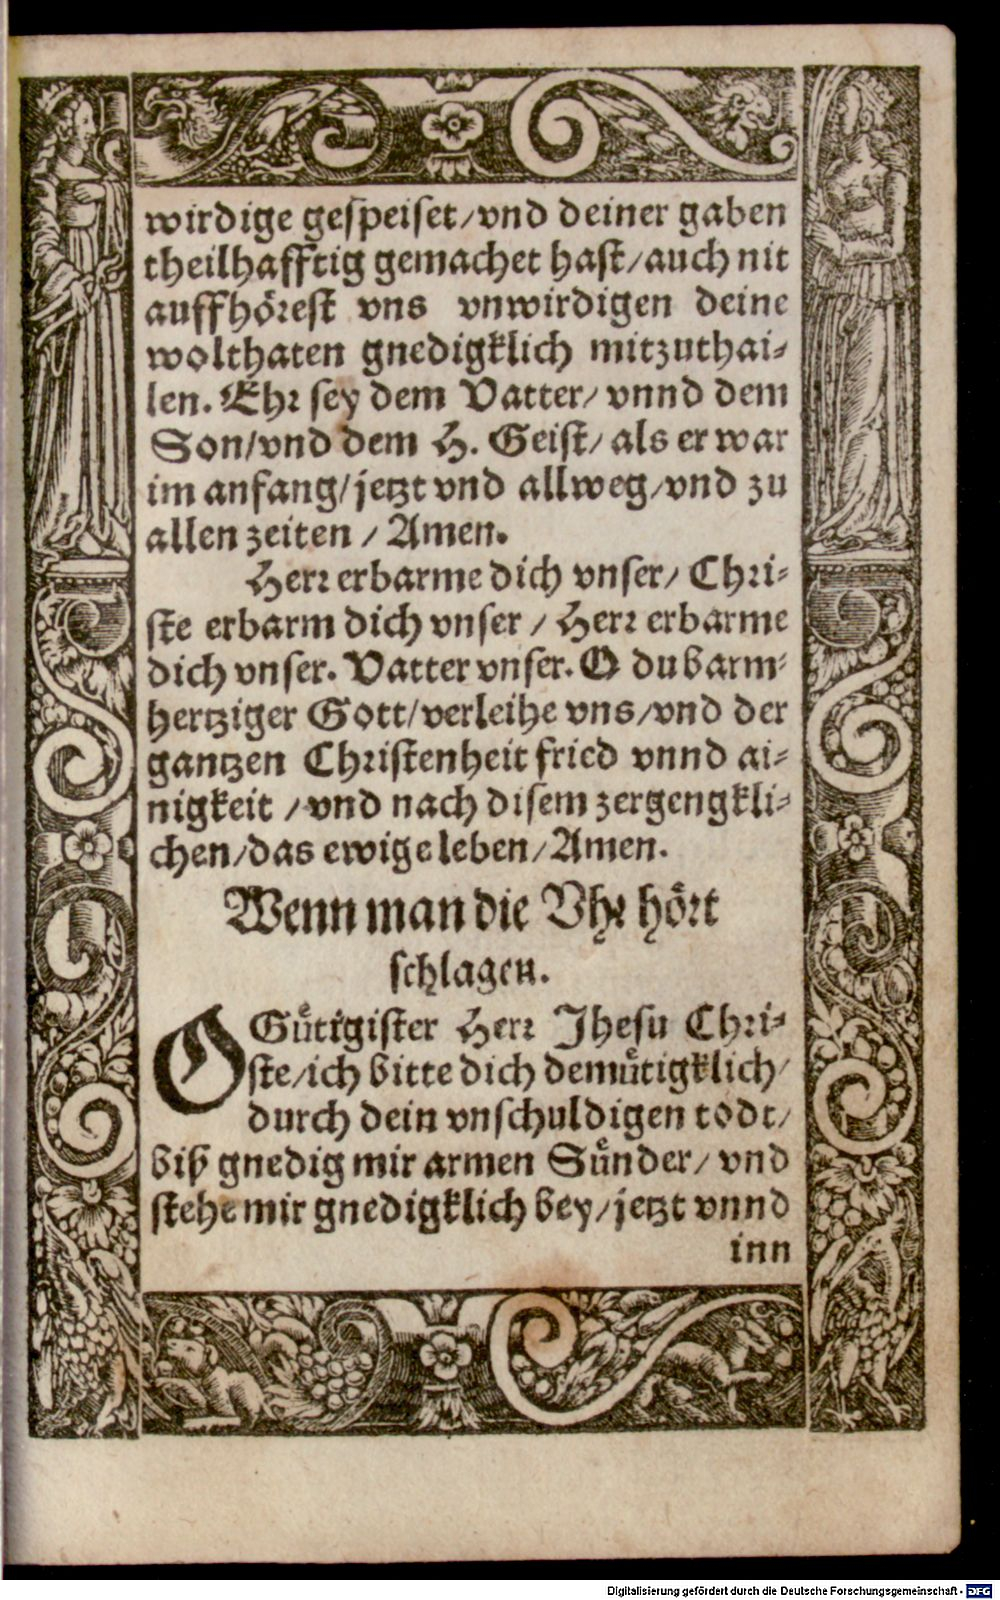 wirdige gespeiset/vnd deiner gaben
theilhafftig gemachet hast/auch nit
auffhörest vns vnwirdigen deine
wolthaten gnedigklich mitzuthai-
len. Ehr sey dem Vatter/ vnnd dem
Son/vnd dem H. Geist/ als er war
im anfang/jetzt vnd allweg/vnd zu
allen zeiten / Amen.
Herr erbarme dich vnser/ Chri-
ste erbarm dich vnser / Herr erbarme
dich vnser. Vatter vnser. O du barm-
hertziger Gott/verleihe vns/vnd der
gantzen Christenheit fried vnnd ai-
nigkeit /vnd nach disem zergengkli-
chen/das ewige leben/Amen.
Wenn man die Vhr hört
schlagen.
O Gůtigister Herr Jhesu Chri-
ste/ich bitte dich demůtigklich/
durch dein vnschuldigen todt/
biß gnedig mir armen Sünder/ vnd
stehe mir gnedigklich bey/jetzt vnnd
inn
Digitalisierung gefördert durch die Deutsche Forschungsgemeinschaft - DFG